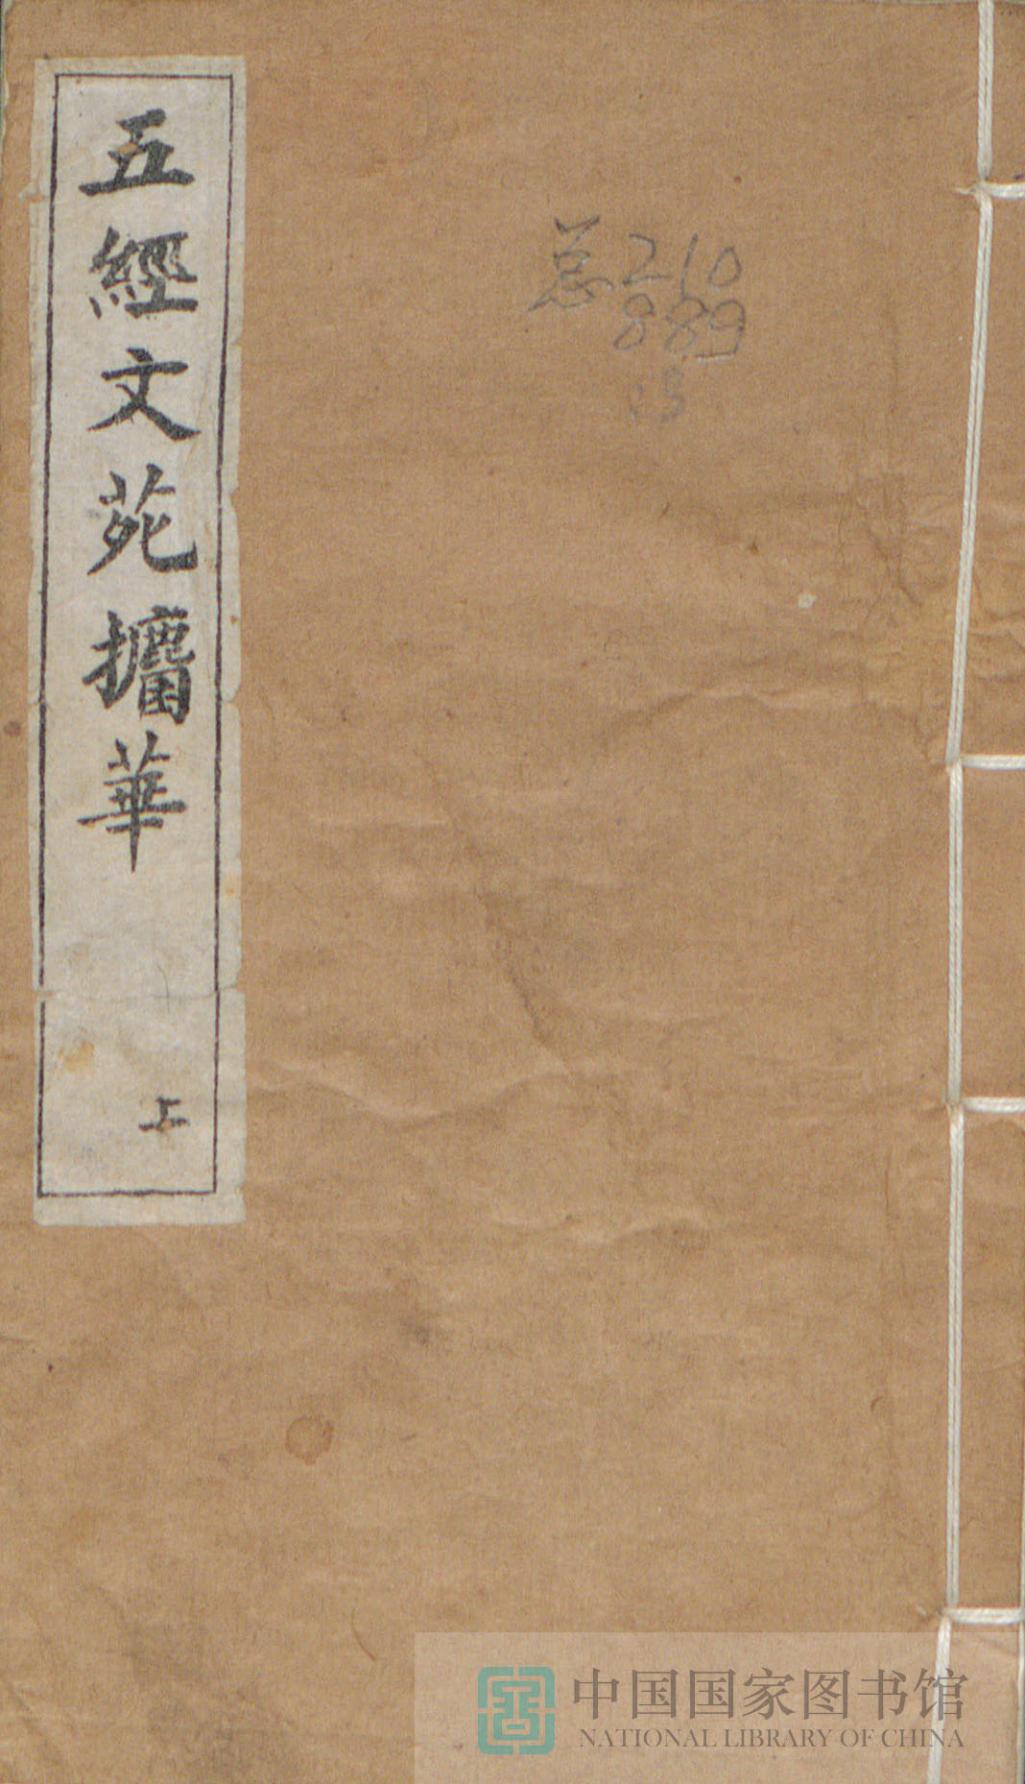 五經文苑攟華
上
总210
889
:3
中国国家图书馆
NATIONAL LIBRARY OF CHINA